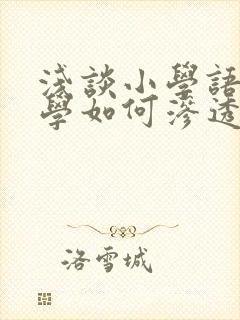 浅談小學語
學如何滲透
洛雪城